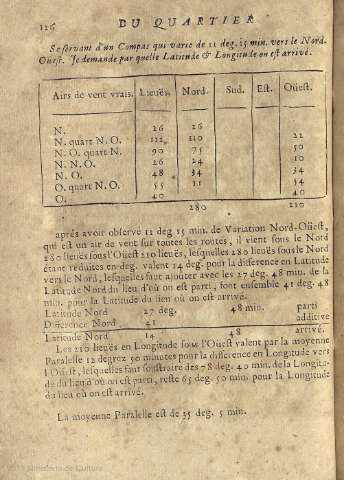 116 DU QUARTIER
Se servant d'un Compas qui varie de 11 deg. 15 min. vers le Nord-
Oüest. Je demande par quelle Latitude & Longitude on est arrivé.
Airs de vent vrais. Lieuës. Nord. Sud. Est. Oüest.
N. 26 26
N. quart N. O. 112 110 22
N. O. quart N. 90 75 50
N. N. O. 26 24 10
N. O. 48 34 34
O. quart N. O. 55 11 54
O. 40 40
280 210
après avoir observé 11 deg 15 min. de Variation Nord-Oüest,
qui est un air de vent sur toutes les routes, il vient sous le Nord
280 lieuës sous l'Oüest 210 lieuës, lesquelles 280 lieuës sous le Nord
étant réduites en deg. valent 14 deg. pour la difference en Latitude
vers le Nord, lesquelles faut ajoûter avec les 27 deg. 48 min. de la
Latitude Nord du lieu d'où on est parti, font ensemble 41 deg. 48
min. pour la Latitude du lieu où on est arrivé.
Latitude Nord 27 deg. 48 min. parti
Difference Nord 41 additive
Latitude Nord 14 48 arrivé.
Les 210 lieuës en Longitude sous l'Oüest valent par la moyenne
Paralelle 12 degrez 50 minutes pour la difference en Longitude vers
l'Oüest, lesquelles faut soustraire des 78 deg. 40 min. de la Longitu-
de du lieu d'où on est parti, reste 65 deg. 50 min. pour la Longitude
du lieu où on est arrivé.
La moyenne Paralelle est de 35 deg. 5 min.
Ministerio de Cultura